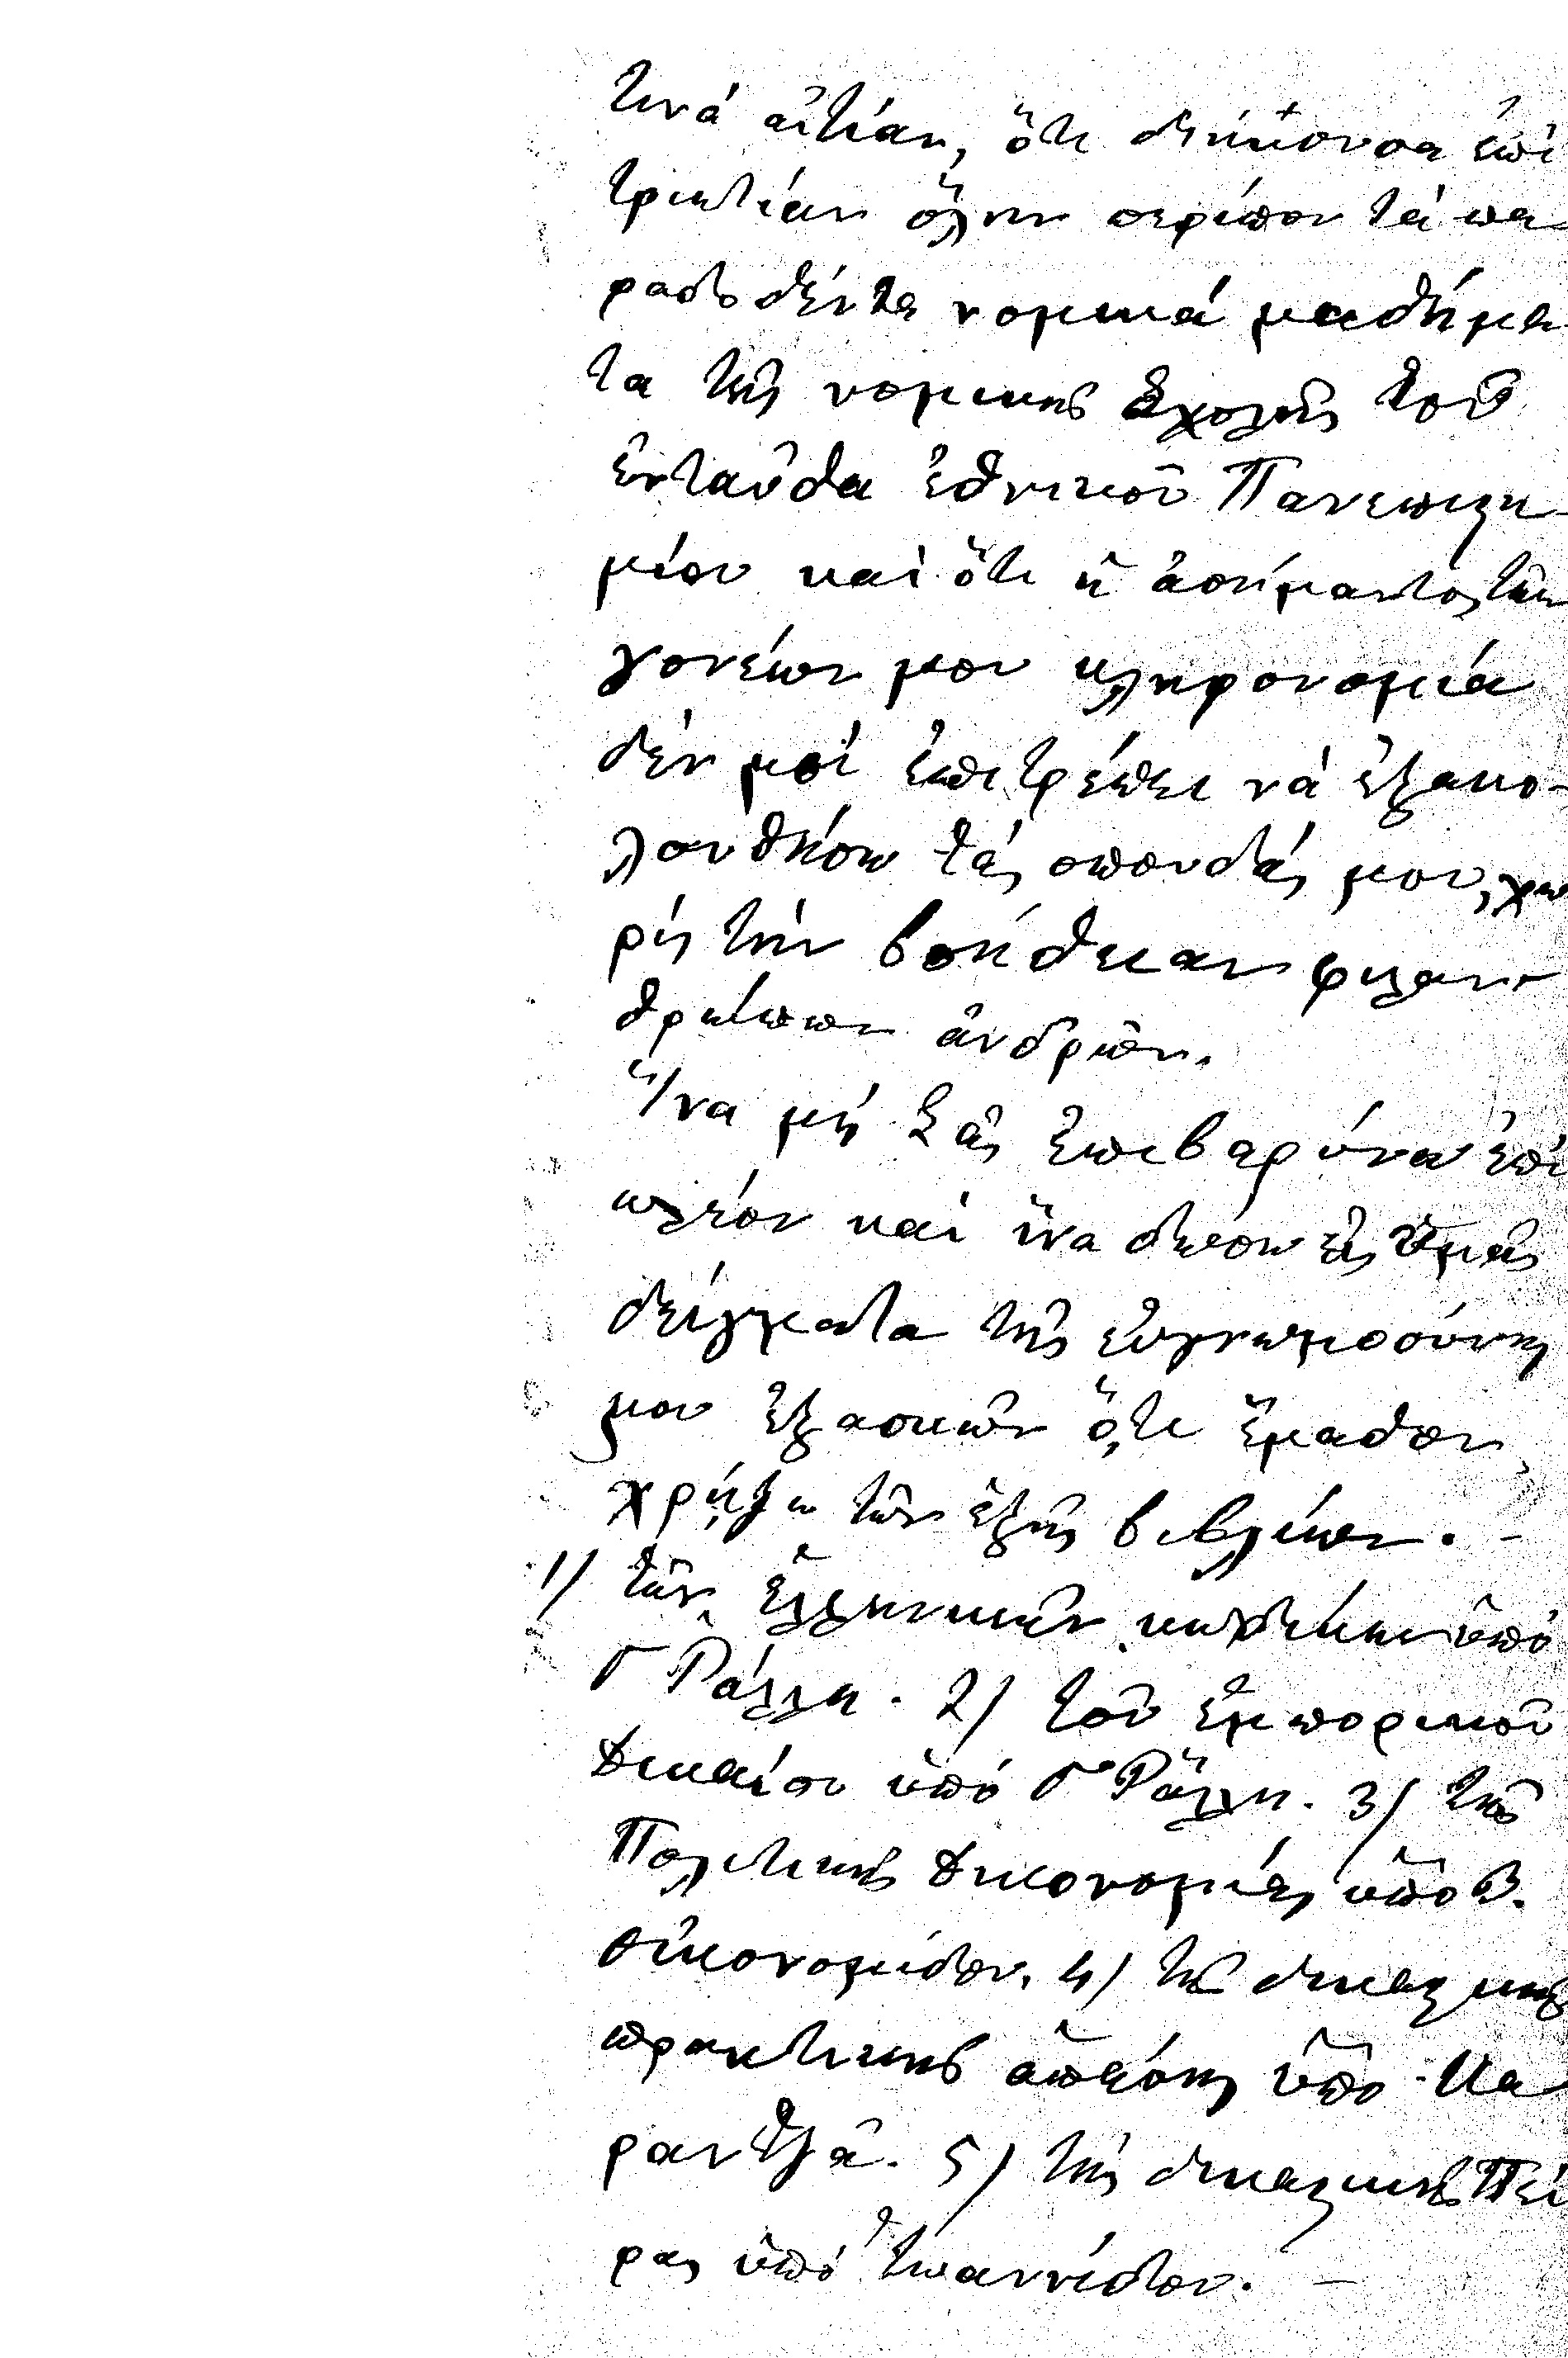 τινά αἰτίαν, ὅτι διήκουσα ἐπί
τριετίαν ὅλην περίπου τά πα
ραδοθέντα νομικά μαθήμα
τα τῆς νομικῆς Σχολῆς τοῦ
ἐνταῦθα ἐθνικοῦ Πανεπιςη-
μίου καί ὅτι ἡ ἀσήμαντος τῶν
γονέων μου κληρονομιά
δέν μοί ἐπιτρέπει νά ἐξακο-
λουθήσω τάς σπουδάς μου, χω
ρίς τήν βοήθειαν φιλαν-
θρώπων ἀνδρῶν.
Ἵνα μή Σᾶς ἐπιβαρύνω ἐπί
πλέον καί ἵνα δώσω εἰς Ὑμᾶς
δείγματα τῆς εὐγνωμοσύνης
μου ἐξασκῶν ὅ,τι ἔμαθον,
χρήζω τῶν ἑξῆς βιβλίων. -
1/ τῶν Ἑλληνικῶν κωδίκων ὑπό
Γ Ράλλη. 2/ τοῦ ἐμπορικοῦ
δικαίου ὑπό Γ Ράλλη. 3/ τῆς
Πολιτικῆς δικονομίας ὑπό Β.
Οἰκονομίδου. 4/ τῆς δικαςικῆς
πρακτικῆς ἁπάσης ὑπό Κα
ραντζᾶ. 5/ τῆς δικαςικῆς Πεί
ρας ὑπό Ἰωαννίδου. -